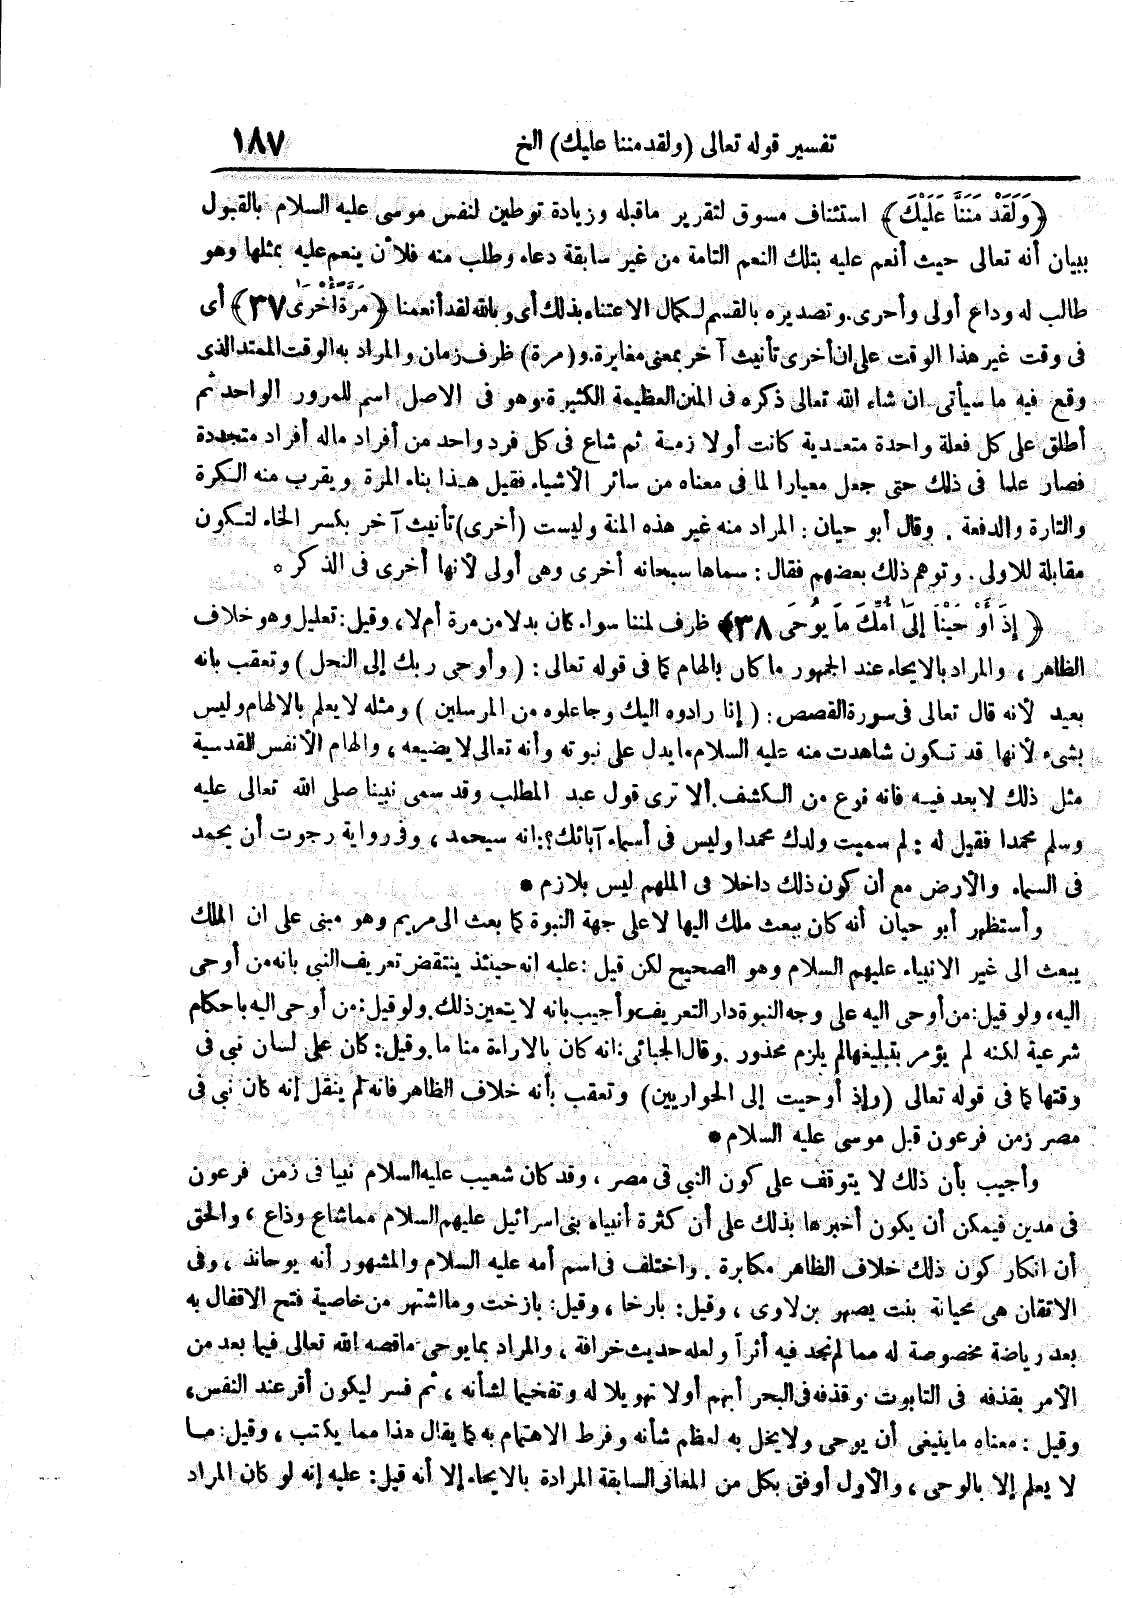 تفسير قوله تعالى (ولقد مننا عليك) الخ ١٨٧
﴿وَلَقَدْ مَنَنَّا عَلَيْكَ﴾ استئناف مسوق لتقرير ماقبله وزيادة توطين لنفس موسى عليه السلام بالقبول
ببيان أنه تعالى حيث أنعم عليه بتلك النعم التامة من غير سابقة دعاء وطلب منه فلأن ينعم عليه بمثلها وهو
طالب له وداع أولى وأحرى. وتصديره بالقسم لكمال الاعتناء بذلك أى وبالله لقد أنعمنا ﴿مَرَّةً أُخْرَى ٣٧﴾ أى
فى وقت غير هذا الوقت على ان أخرى تأنيث آخر بمعنى مغايرة. و(مرة) ظرف زمان والمراد به الوقت الممتد الذى
وقع فيه ما سيأتى ان شاء الله تعالى ذكره فى المنن العظيمة الكثيرة. وهو فى الاصل اسم للمرور الواحد ثم
أطلق على كل فعلة واحدة متعدية كانت أو لازمة ثم شاع فى كل فرد واحد من أفراد ماله أفراد متجددة
فصار علما فى ذلك حتى جعل معيارا لما فى معناه من سائر الأشياء فقيل هذا بناء المرة ويقرب منه الكرة
والتارة والدفعة . وقال أبو حيان : المراد منه غير هذه المنة وليست (أخرى) تأنيث آخر بكسر الخاء لتكون
مقابلة للاولى. وتوهم ذلك بعضهم فقال : سماها سبحانه أخرى وهى أولى لأنها أخرى فى الذكر *
﴿ إِذْ أَوْحَيْنَا إِلَى أُمِّكَ مَا يُوحَى ٣٨﴾ ظرف لمننا سواء كان بدلا من مرة أم لا، وقيل: تعليل وهو خلاف
الظاهر ، والمراد بالايحاء عند الجمهور ما كان بالهام كما فى قوله تعالى : ( وأوحى ربك إلى النحل ) وتعقب بانه
بعيد لأنه قال تعالى فى سورة القصص: ( إنا رادوه اليك وجاعلوه من المرسلين ) ومثله لا يعلم بالالهام وليس
بشىء لأنها قد تكون شاهدت منه عليه السلام ما يدل على نبوته وأنه تعالى لا يضيعه ، والهام الأنفس القدسية
مثل ذلك لا بعد فيه فانه نوع من الكشف. ألا ترى قول عبد المطلب وقد سمى نبينا صلى الله تعالى عليه
وسلم محمدا فقيل له : لم سميت ولدك محمدا وليس فى أسماء آبائك؟: انه سيحمد ، وفى رواية رجوت أن يحمد
فى السماء والأرض مع أن كون ذلك داخلا فى الملهم ليس بلازم *
وأستظهر أبو حيان أنه كان ببعث ملك اليها لا على جهة النبوة كما بعث الى مريم وهو مبنى على ان الملك
يبعث الى غير الانبياء عليهم السلام وهو الصحيح لكن قيل : عليه انه حينئذ ينتقض تعريف النبى بانه من أوحى
اليه، ولو قيل: من أوحى اليه على وجه النبوة دار التعريف وأجيب بانه لا يتعين ذلك. ولو قيل: من أوحى اليه باحكام
شرعية لكنه لم يؤمر بتبليغها لم يلزم محذور . وقال الجبائى: انه كان بالاراءة مناما. وقيل: كان على لسان نبى فى
وقتها كما فى قوله تعالى (وإذ أوحيت إلى الحواريين) وتعقب بأنه خلاف الظاهر فانه لم ينقل إنه كان نبى فى
مصر زمن فرعون قبل موسى عليه السلام *
وأجيب بأن ذلك لا يتوقف على كون النبى فى مصر ، وقد كان شعيب عليه السلام نبيا فى زمن فرعون
فى مدين فيمكن أن يكون أخبرها بذلك على أن كثرة أنبياء بنى اسرائيل عليهم السلام مما شاع وذاع ، والحق
أن انكار كون ذلك خلاف الظاهر مكابرة . واختلف فى اسم أمه عليه السلام والمشهور أنه يوحانذ ، وفى
الاتقان هى محيانة بنت يصهر بن لاوى ، وقيل: بارخا ، وقيل: بازخت وما اشتهر من خاصية فتح الاقفال به
بعد رياضة مخصوصة له مما لم نجد فيه أثراً ولعله حديث خرافة ، والمراد بما يوحى ماقصه الله تعالى فيما بعد من
الأمر بقذفه فى التابوت وقذفه فى البحر أبهم أولا تهويلا له وتفخيما لشأنه ، ثم فسر ليكون أقر عند النفس،
وقيل : معناه ماينبغى أن يوحى ولا يخل به لعظم شأنه وفرط الاهتمام به كما يقال هذا مما يكتب ، وقيل: ما
لا يعلم إلا بالوحى ، والأول أوفق بكل من المعانى السابقة المرادة بالايحاء إلا أنه قيل : عليه إنه لو كان المراد